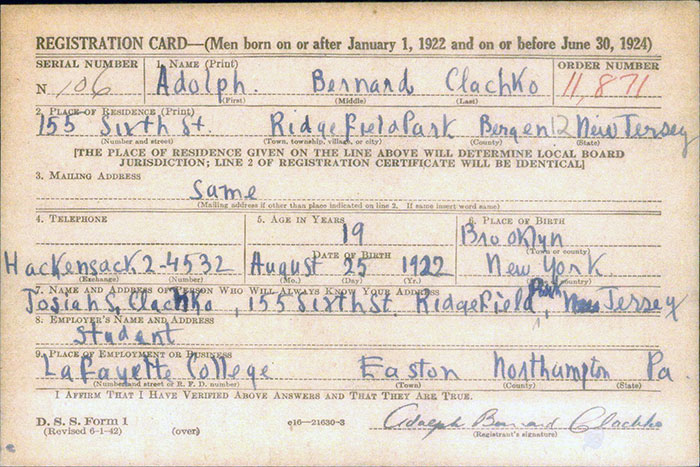 REGISTRATION CARD—(Men born on or after January 1, 1922 and on or before June 30, 1924)
SERIAL NUMBER 1. NAME (Print) ORDER NUMBER
N 106 Adolph. Bernard Clachko 11,871
(First) (Middle) (Last)
2. PLACE OF RESIDENCE (Print)
155 Sixth St. Ridgefield Park Bergen 12 New Jersey
(Number and street) (Town, township, village, or city) (County) (State)
[THE PLACE OF RESIDENCE GIVEN ON THE LINE ABOVE WILL DETERMINE LOCAL BOARD
JURISDICTION; LINE 2 OF REGISTRATION CERTIFICATE WILL BE IDENTICAL]
3. MAILING ADDRESS
Same
(Mailing address if other than place indicated on line 2. If same insert word same)
4. TELEPHONE 5. AGE IN YEARS 6. PLACE OF BIRTH
19 Brooklyn
DATE OF BIRTH (Town or county)
Hackensack 2-4532 August 25 1922 New York
(Exchange) (Number) (Mo.) (Day) (Yr.) (State or country)
7. NAME AND ADDRESS OF PERSON WHO WILL ALWAYS KNOW YOUR ADDRESS
Josiah S. Clachko, 155 Sixth St. Ridgefield Park, New Jersey
8. EMPLOYER'S NAME AND ADDRESS
Student
9. PLACE OF EMPLOYMENT OR BUSINESS
Lafayette College Easton Northampton Pa.
(Number and street or R. F. D. number) (Town) (County) (State)
I AFFIRM THAT I HAVE VERIFIED ABOVE ANSWERS AND THAT THEY ARE TRUE.
D. S. S. Form 1 c16—21630-3 Adolph Bernard Clachko
(Revised 6-1-42) (over) (Registrant's signature)